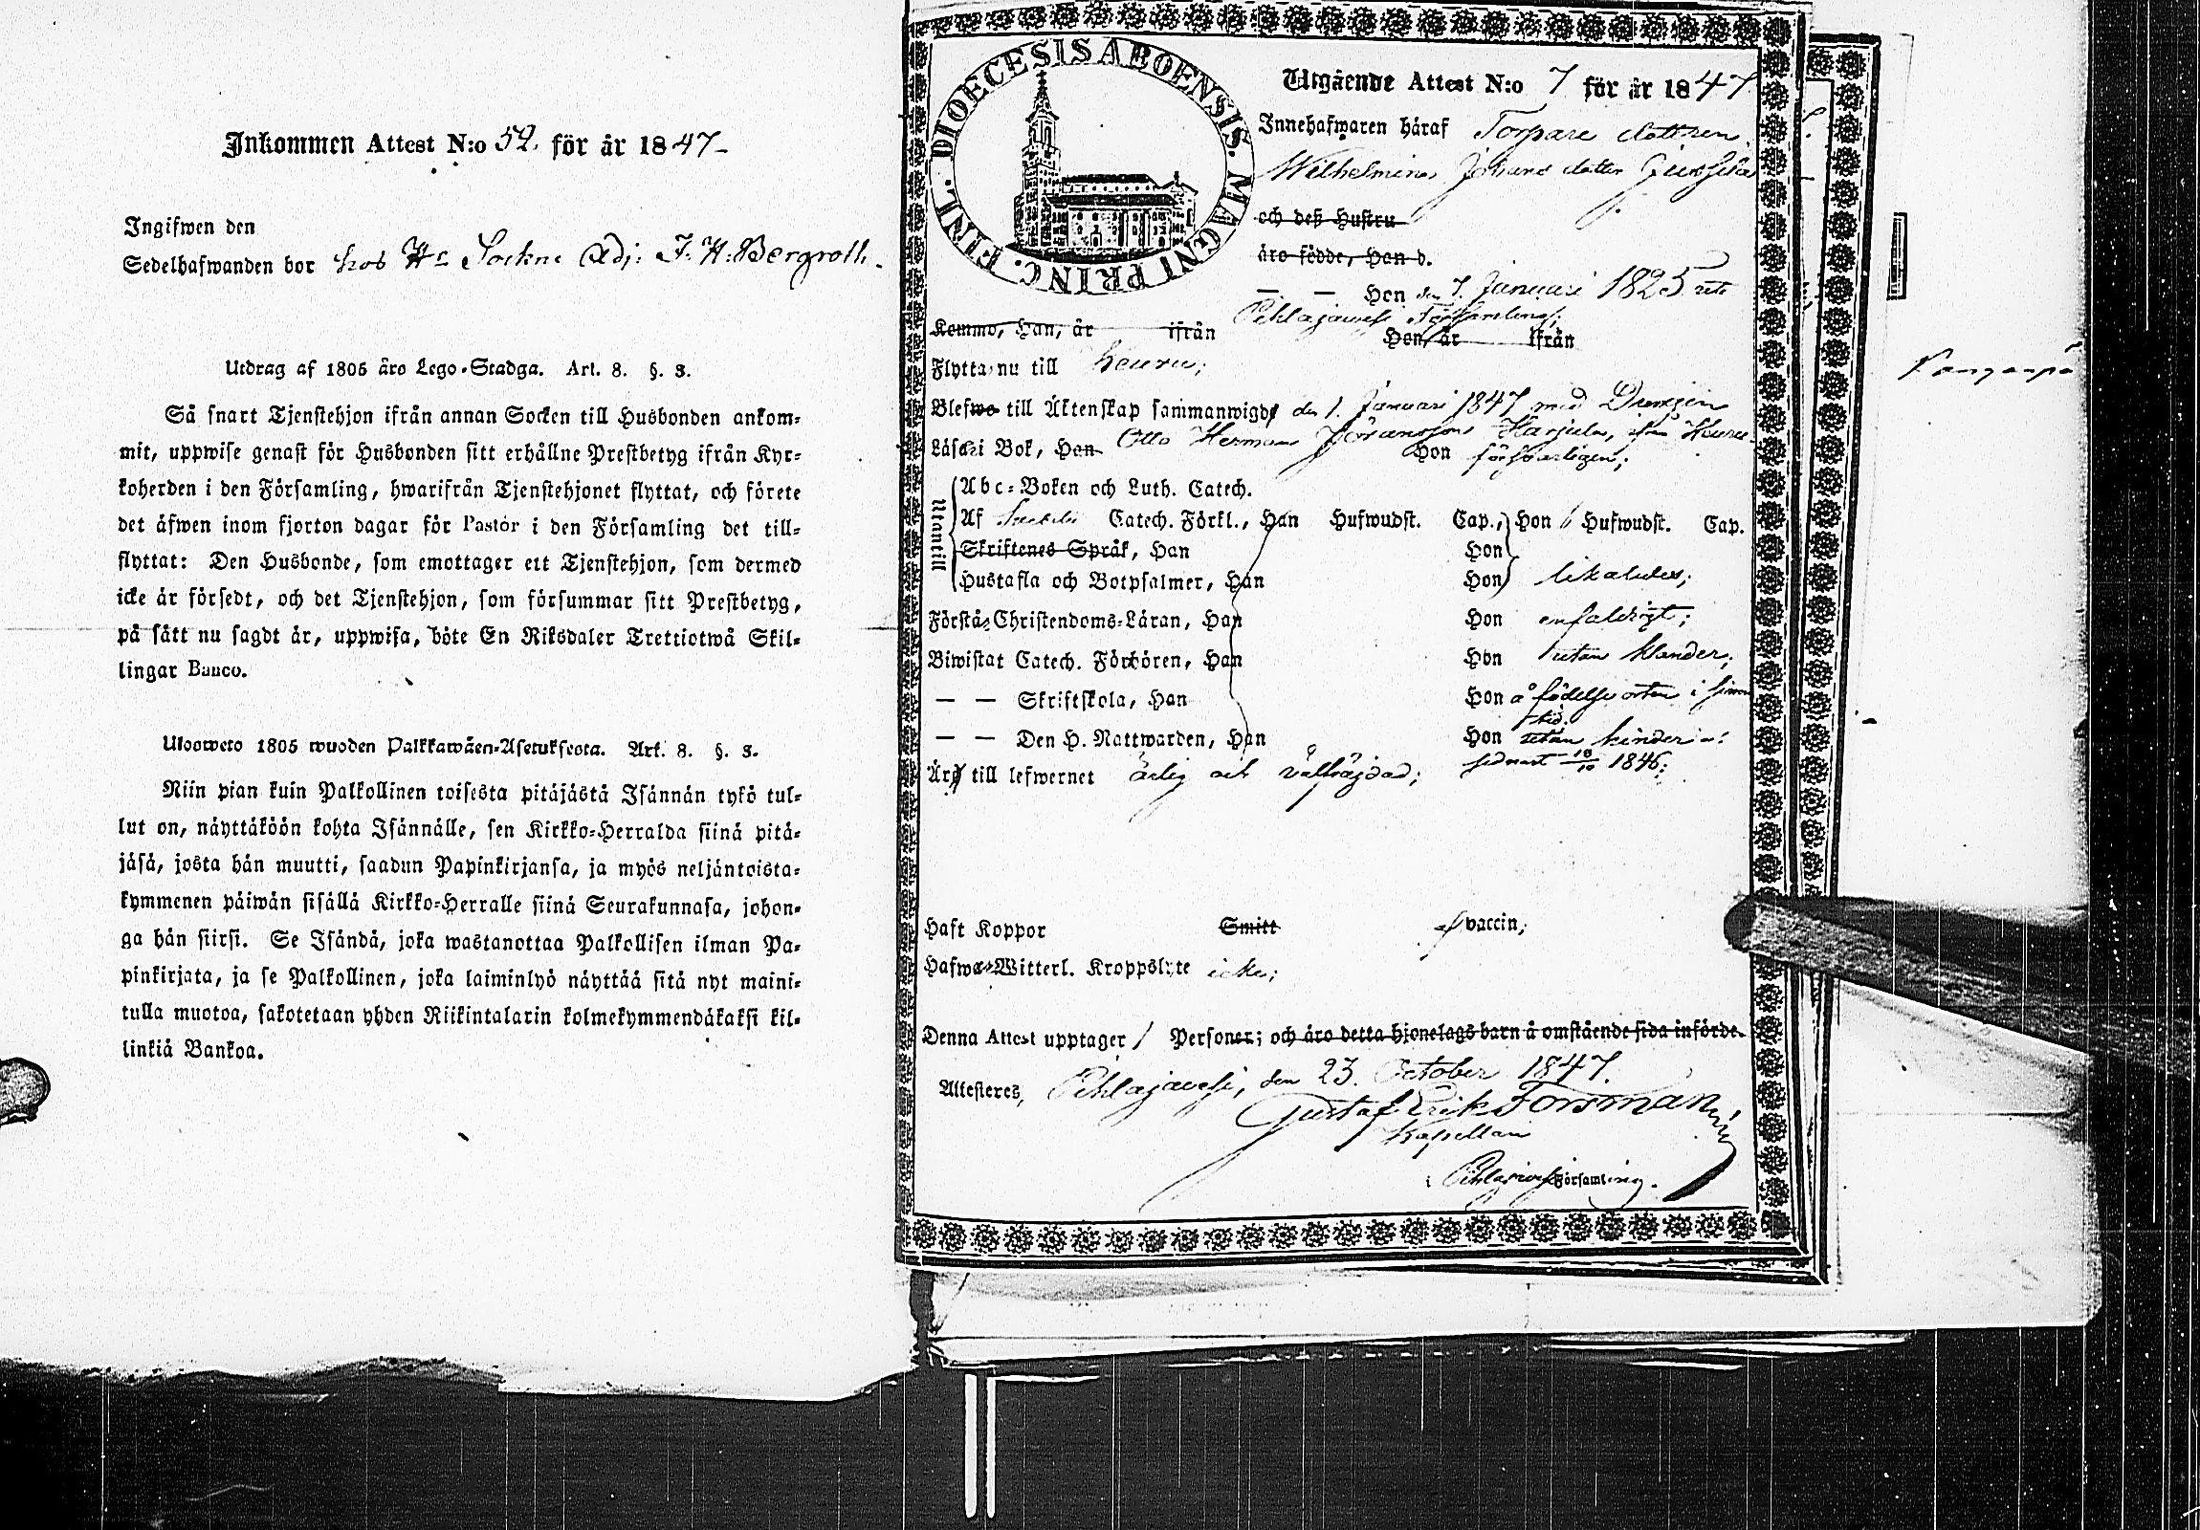 Inkommen Attest N:o 52. för år 1847
Ingifwen den
Sedelhafwanden bor hos Hr Sockne Adj: F. H. Bergroth.
Utdrag af 1805 års Lego-Stadga. Art. 8. §. 3.
Så snart Tjenstehjon ifrån annan Socken till Husbonden ankom-
mit, uppwise genast för Husbonden sitt erhållne Prestbetyg ifrån Kyr-
koherden i den Församling, hwarifrån Tjenstehjonet flyttat, och förete
det äfwen inom fjorton dagar för Pastor i den Församling det till-
flyttat: Den Husbonde, som emottager ett Tjenstehjon, som dermed
icke är försedt, och det Tjenstehjon, som försummar sitt Prestbetyg,
på sätt nu sagdt är, uppwisa, böte En Riksdaler Trettiotwå Skil-
lingar Banco.
Ulosweto 1805 wuoden Palkkawäen-Asetuksesta. Art. 8. §. 3.
Niin pian kuin Palkollinen toisesta pitäjästä Isännän tykö tul-
lut on, näyttäköön kohta Isännälle, sen Kirkko-Herralda siinä pitä-
jäsä, josta hän muutti, saadun Papinkirjansa, ja myös neljäntoista-
kymmenen päiwän sisällä Kirkko-Herralle siinä Seurakunnasa, johon-
ga hän siirsi. Se Isändä, joka wastanottaa Palkollisen ilman Pa-
pinkirjata, ja se Palkollinen, joka laiminlyö näyttää sitä nyt maini-
tulla muotoa, sakotetaan yhden Riikintalarin kolmekymmendäkaksi kil-
linkiä Bankoa.
DIOECESIS ABOENSIS. MAGNI PRINC. FINL.
Utgående Attest N:o 7 för år 1847
Innehafwaren häraf Torpare dottren
Wilhelmina Johans dotter
och desz Hustru
äro födde, Han d.
— — Hon den 7. Januari 1825
Pihlajavesi Församling;
Komme, Han, år ifrån Hon, år ifrån
Flytta nu till Keuru;
Blefwe till Äktenskap sammanwigde den 1. Januari 1847 med Drengen
Otto Herman Johansson Harjula, ifrån Keuru
Läser i Bok, Han Hon försvarligen;
Utantill
Abc-Boken och Luth. Catech.
Af Catech. Förkl., Han Hufwudst. Cap., Hon 6 Hufwudst. Cap.
Skriftenes Språk, Han Hon
Hustafla och Botpsalmer, Han Hon likaledes;
Förstå Christendoms-Läran, Han Hon enfaldigt;
Biwistat Catech. Förhören, Han Hon utan klander;
— — Skriftskola, Han Hon å födelse orten i sinom
tid.
— — Den H. Nattwarden, Han Hon utan hinder
sednast 18/10 1846;
Är till lefwernet ärlig och välfräjdad;
Haft Koppor Smitt af vaccin;
Hafwa Witterl. Kroppslyte icke;
Denna Attest upptager 1 Personer; och äro detta hjonelags barn å omstående sida införde.
Attesteres, Pihlajavesi, den 23. October 1847.
Gustaf Erik Forsman
Kapellan
i Pihlajavesi Församling.